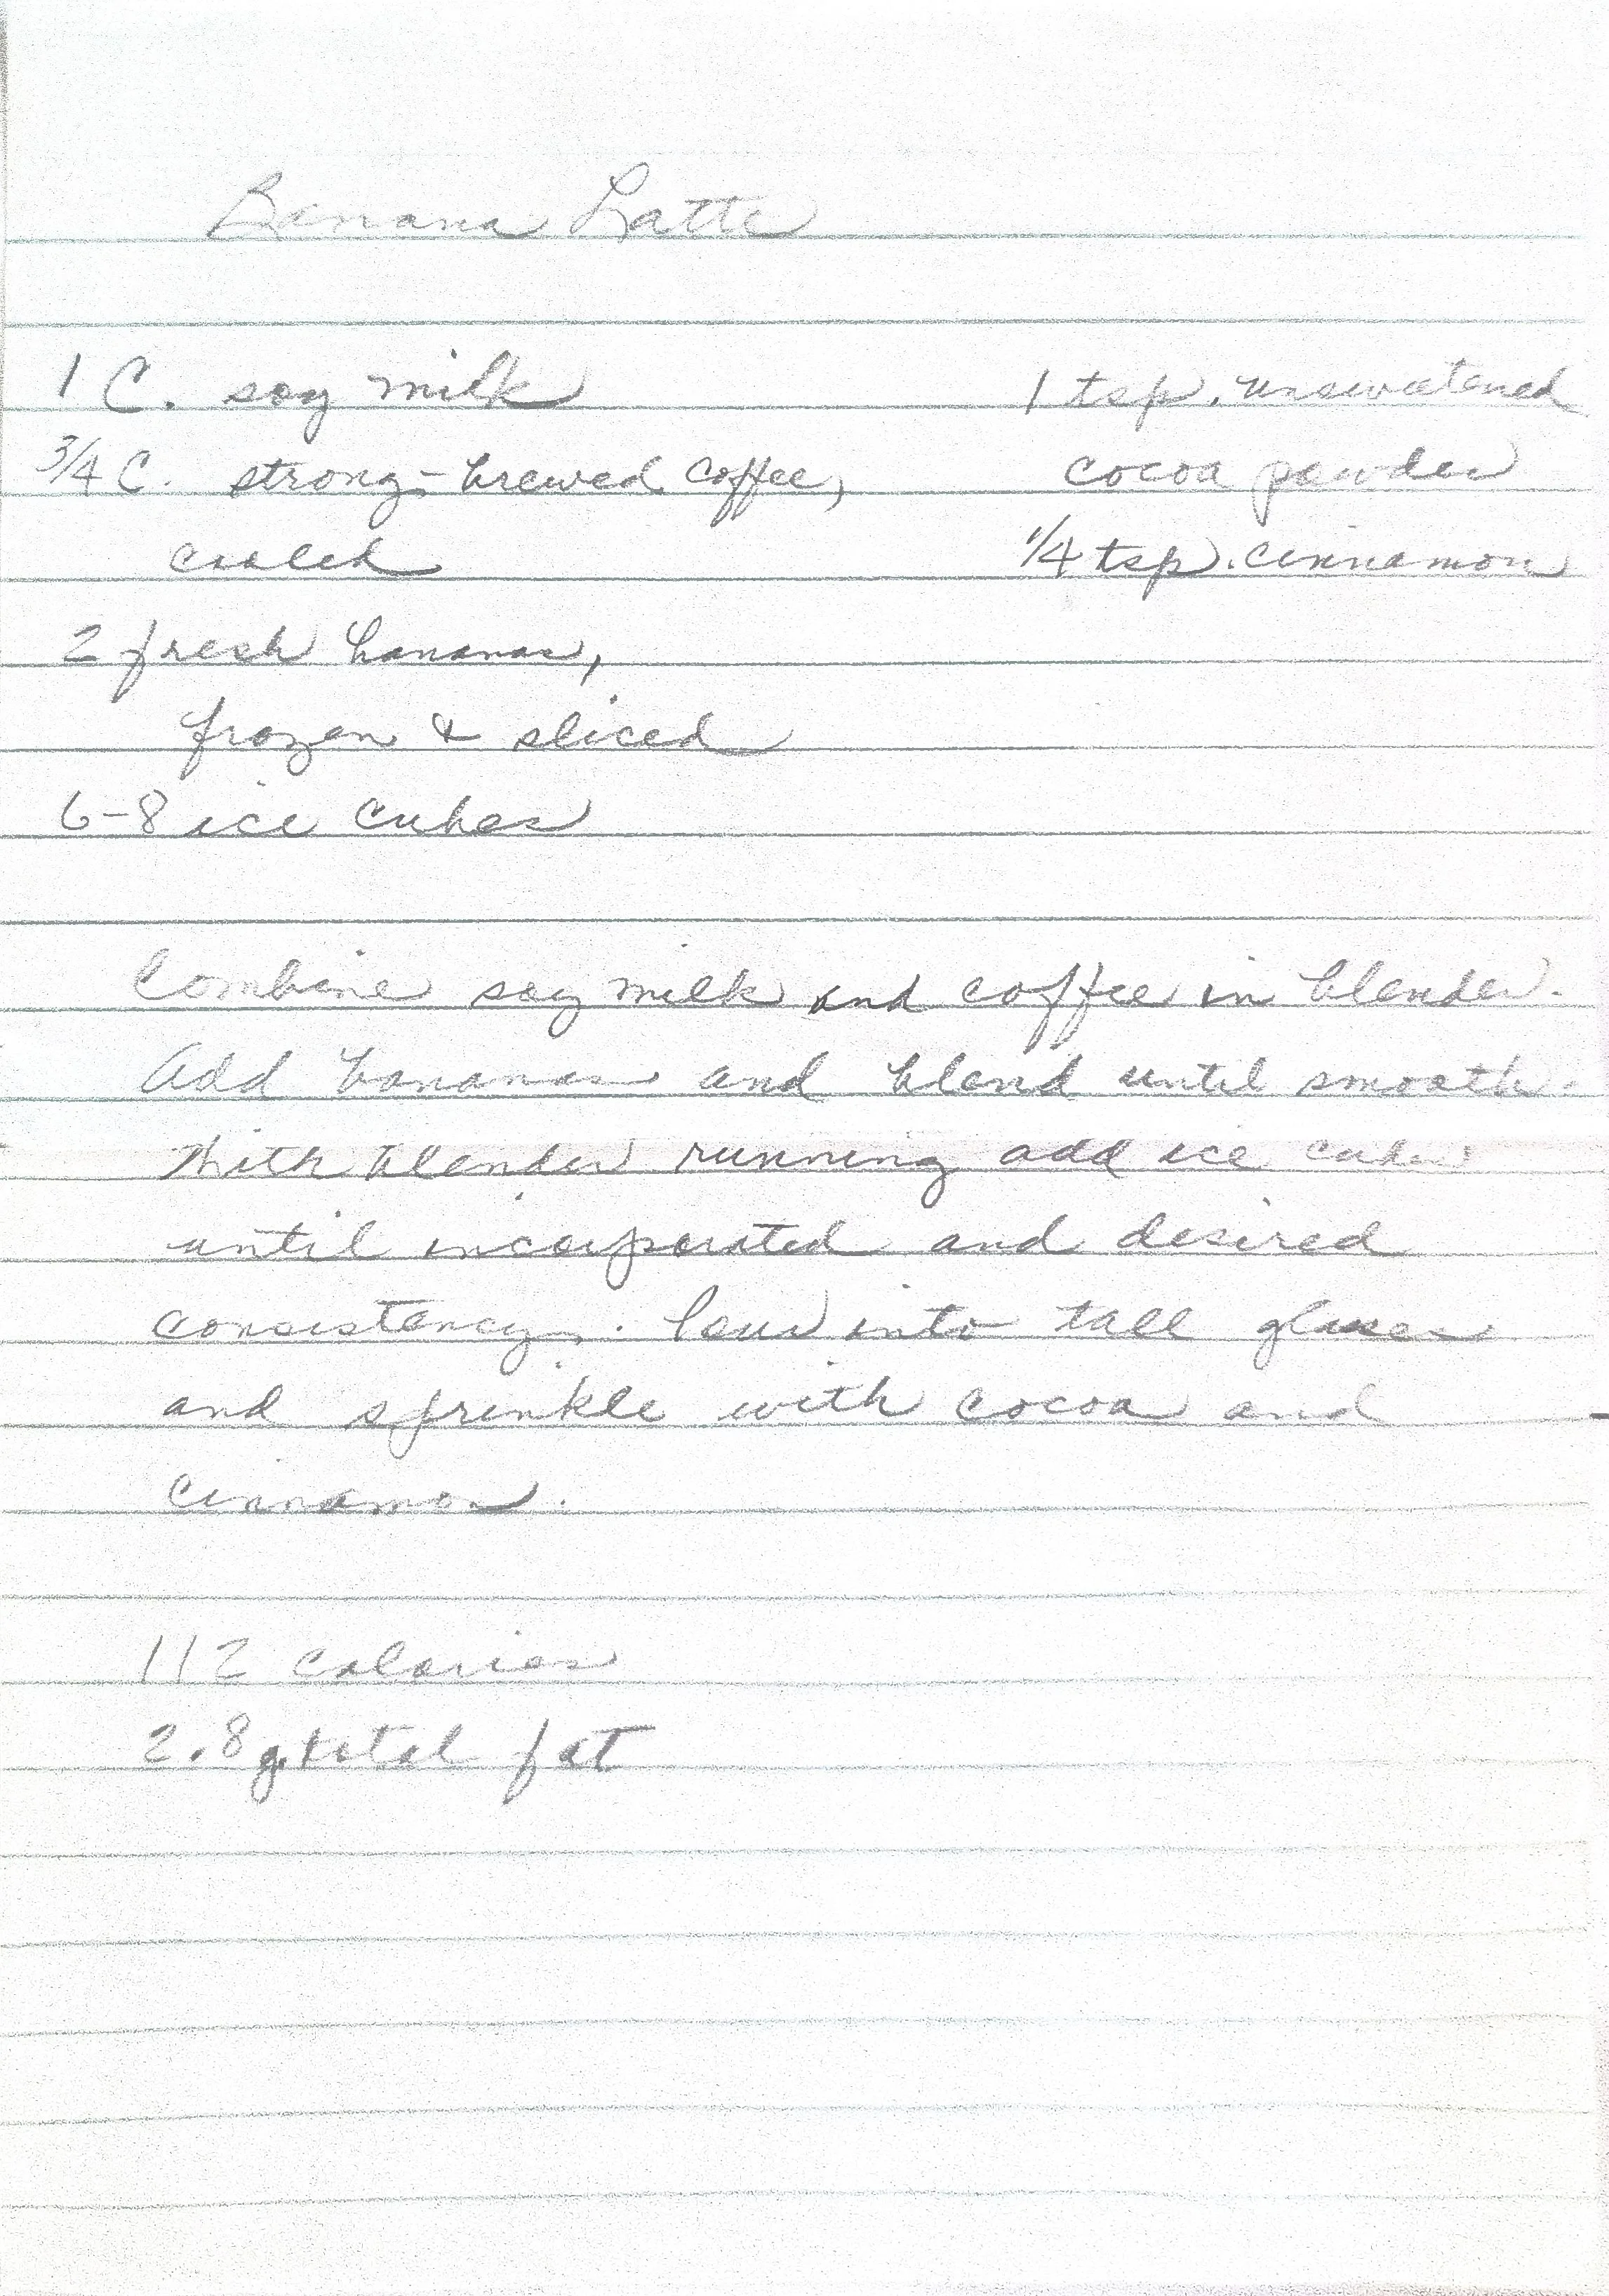 Banana Latte
1 C. soy milk
3/4 C. strong-brewed coffee,
cooled
2 fresh bananas,
frozen & sliced
6-8 ice cubes
1 tsp. unsweetened
cocoa powder
1/4 tsp. cinnamon
Combine soy milk and coffee in blender.
Add bananas and blend until smooth.
With blender running add ice cubes
until incorporated and desired
consistency. Pour into tall glasses
and sprinkle with cocoa and
cinnamon.
112 calories
2.8 g. total fat